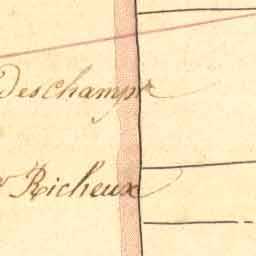 Deschamps
r Richeux